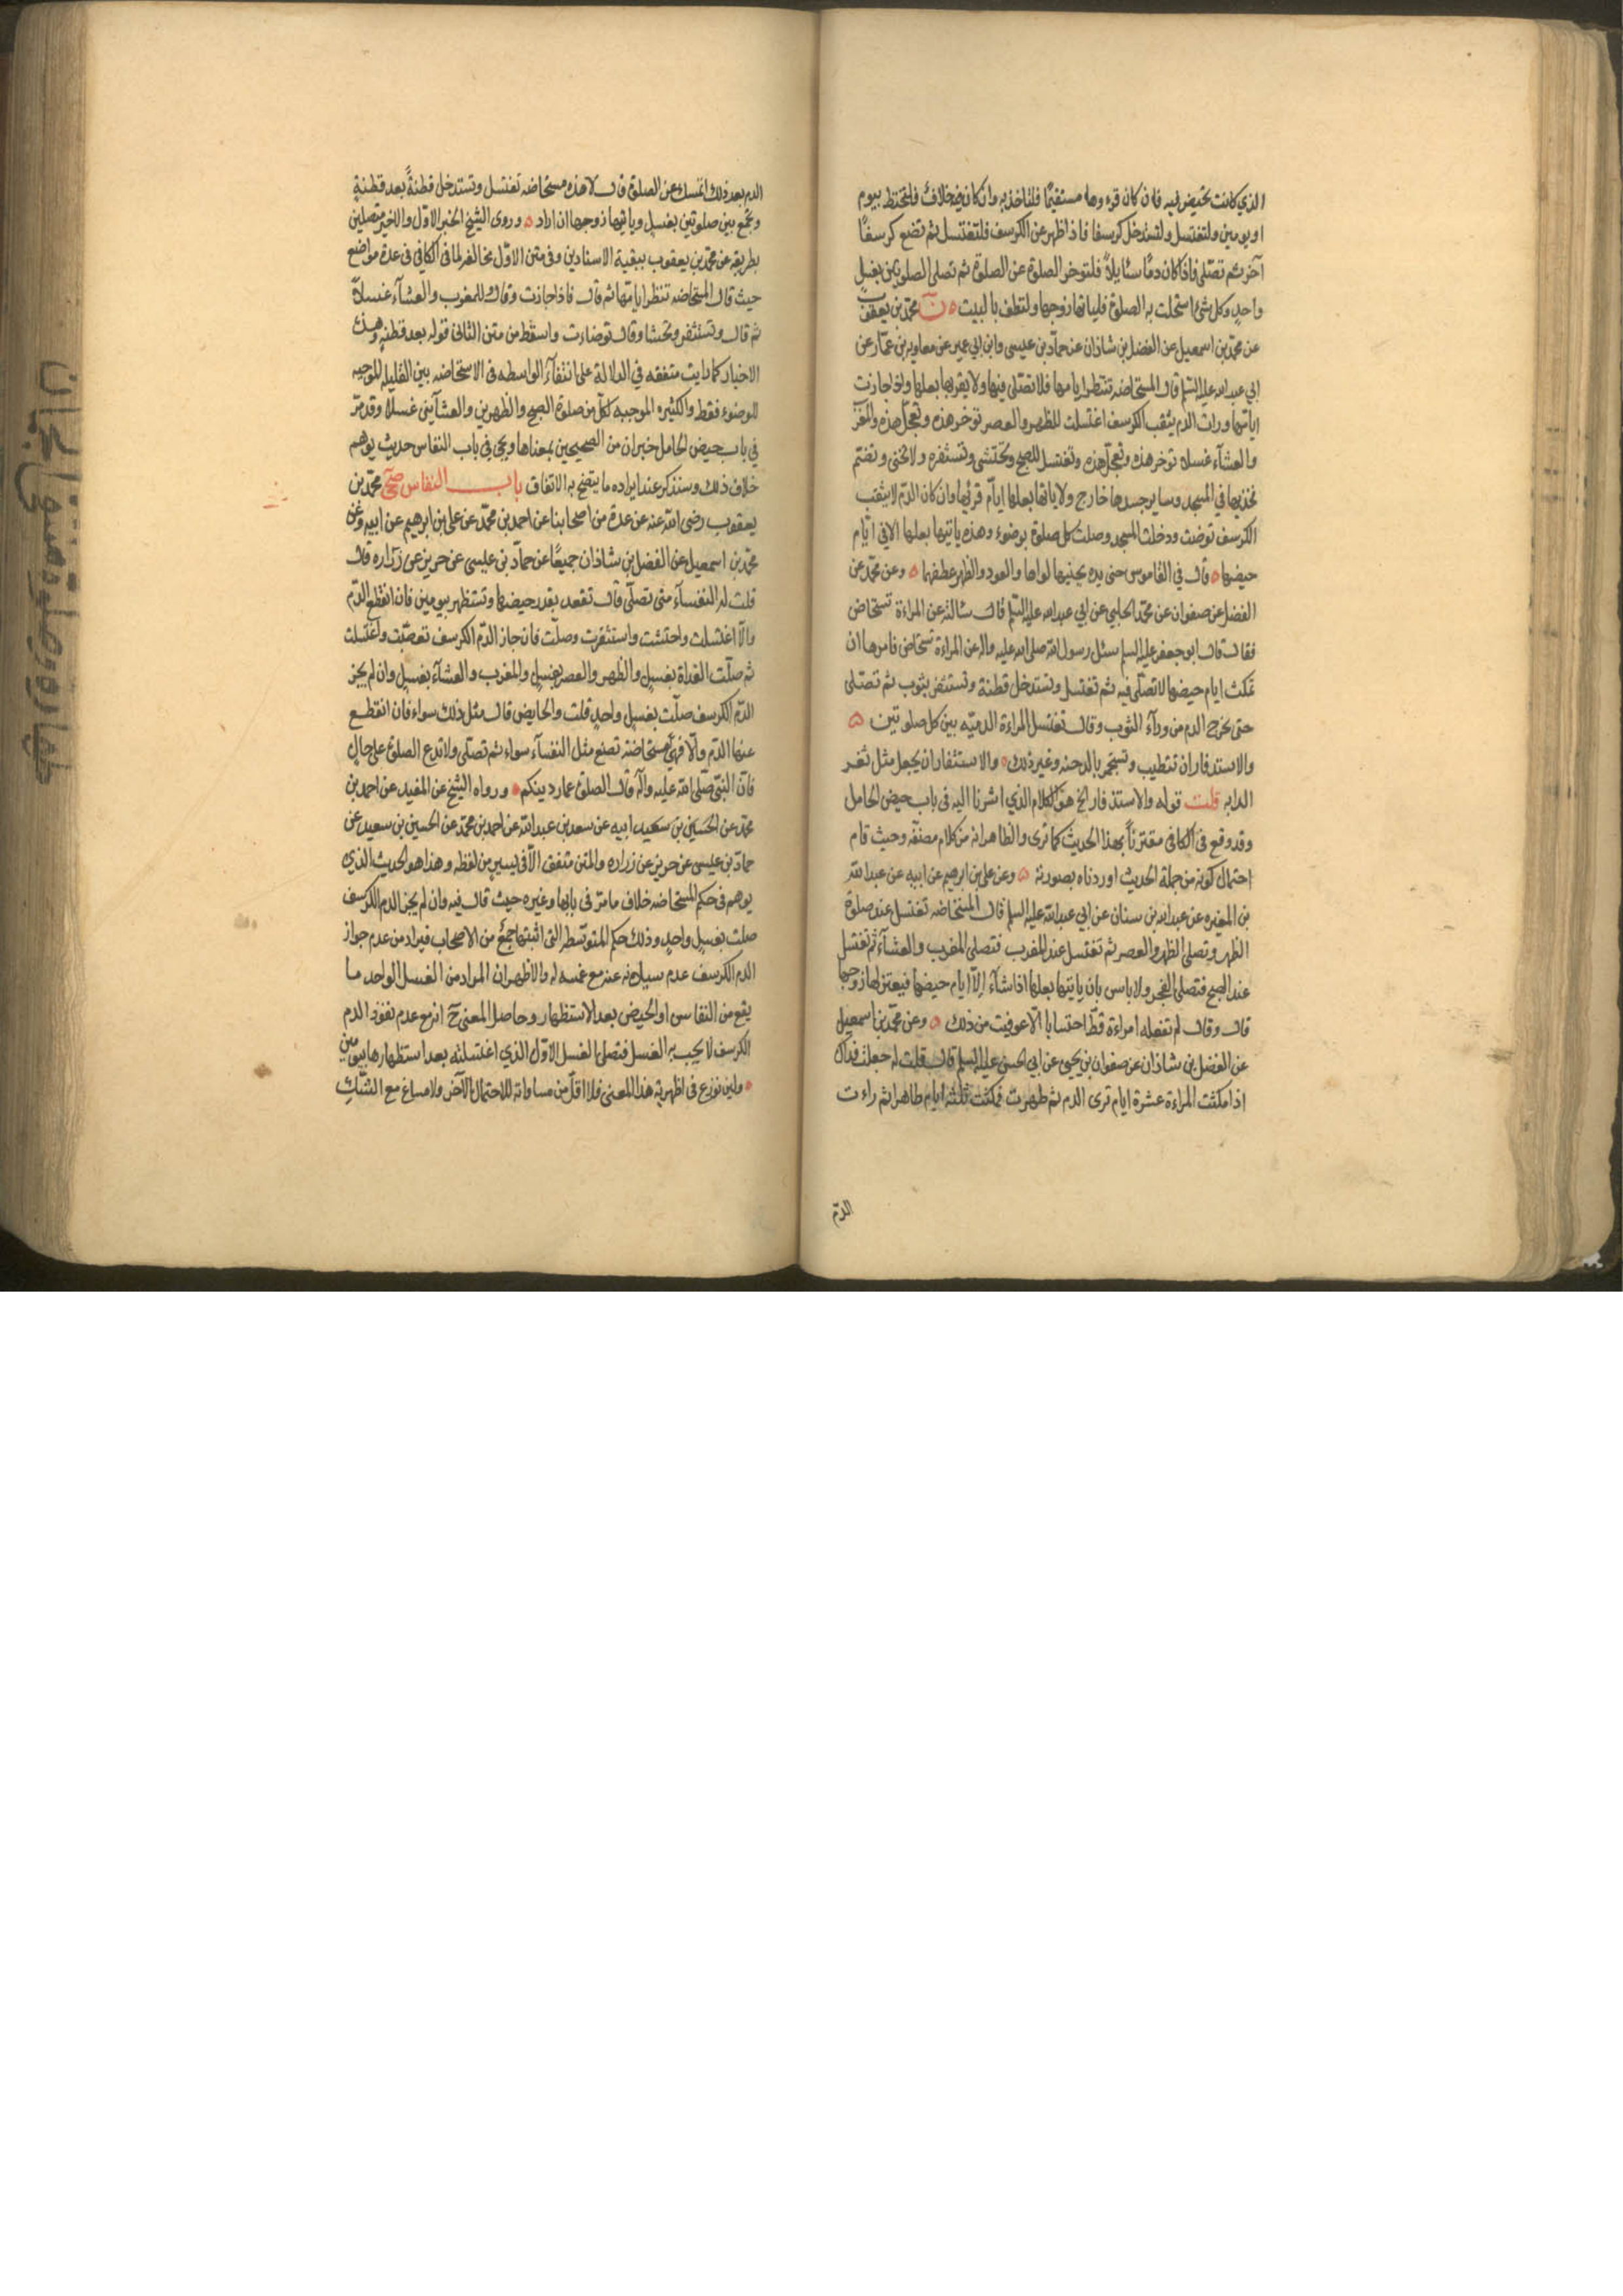 الذي كانت تحيض فيه فان كان قروءها مستقيمًا فلتاخذ به وان كان فيه خلاف فلتحتط بيوم
او يومين ولتغتسل ولتستدخل كرسفا فاذا ظهر عن الكرسف فلتغتسل ثم تضع كرسفًا
آخر ثم تصلى فاذا كان دمًا سائلاً فلتوخر الصلوة عن الصلوة ثم تصلى الصلوتين بغسل
واحد وكل شئ استحلت به الصلوة فلياتها زوجها ولتطف بالبيت ن محمد بن يعقوب
عن محمد بن اسمعيل عن الفضل بن شاذان عن حماد بن عيسى وابن ابي عمير عن معاوية بن عمار عن
ابي عبد الله عليه السلم قال المستحاضه تنتظر ايامها فلا تصلى فيها ولا يقربها بعلها واذا جازت
ايامها ورات الدم يثقب الكرسف اغتسلت للظهر والعصر توخر هذه وتعجل هذه والمغرب
والعشآء غسلا توخر هذه وتعجل هذه وتغتسل للصبح وتحتشى وتستثفر ولا تحنى وتضم
فخذيها في المسجد وساير جسدها خارج ولا ياتها بعلها ايام قرئها وان كان الدم لا يثقب
الكرسف توضت ودخلت المسجد وصلت كل صلوة بوضوء وهذه ياتيها بعلها الا في ايام
حيضها قال في القاموس حنى يده يحنيها لواها والعود والظهر عطفهما وعن محمد عن
الفضل عن صفوان عن محمد الحلبي عن ابي عبد الله عليه السلم قال سالته عن المراءة تستحاض
فقال قال ابو جعفر عليه السلم سئل رسول الله صلى الله عليه واله عن المراءة تستحاض فامرها ان
تمكث ايام حيضها لا تصلى فيه ثم تغتسل وتستدخل قطنة وتستثفر بثوب ثم تصلى
حتى يخرج الدم من ورآء الثوب وقال تغتسل المراءة الدميه بين كل صلوتين
والاستدفار ان تتطيب وتستجمر بالدخنه وغير ذلك والاستثفار ان يجعل مثل ثفر
الدابه قلت قوله والاستدفار الخ هو الكلام الذي اشرنا اليه فى باب حيض الحامل
وقد وقع فى الكافى مقترناً بهذا الحديث كما ترى والظاهر انه من كلام مصنفه وحيث قام
احتمال كونه من جملة الحديث اوردناه بصورته وعن على بن ابرهيم عن ابيه عن عبد الله
بن المغيره عن عبد الله بن سنان عن ابي عبد الله عليه السلم قال المستحاضه تغتسل عند صلوة
الظهر وتصلى الظهر والعصر ثم تغتسل عند المغرب فتصلى المغرب والعشآء ثم تغتسل
عند الصبح فتصلى الفجر ولا باس بان ياتيها بعلها اذا شآء الا ايام حيضها فيعتزلها زوجها
قال وقال لم تفعله امراءة قط احتسابا الا عوفيت من ذلك وعن محمد بن اسمعيل
عن الفضل بن شاذان عن صفوان بن يحيى عن ابي الحسن عليه السلم قال قلت له جعلت فداك
اذا مكثت المراءة عشرة ايام ترى الدم ثم طهرت فمكثت ثلثة ايام طاهرا ثم راءت
الدم
الدم بعد ذلك اتمسك عن الصلوة قال لا هذه مستحاضه تغتسل وتستدخل قطنةً بعد قطنةٍ
وتجمع بين صلوتين بغسل وياتيها زوجها ان اراد وروى الشيخ الخبر الاول والاخير متصلين
بطريقه عن محمد بن يعقوب ببقية الاسنادين وفى متن الاول مخالفه لما فى الكافى فى عدة مواضع
حيث قال المستحاضه تنتظر ايامها ثم قال فاذا جازت وقال للمغرب والعشآء غسلاً
ثم قال وتستثفر وتحشا وقال توضاءت واسقط من متن الثانى قوله بعد قطنه وهذه
الاخبار كما رايت متفقه في الدلالة على انتفآء الواسطه فى الاستحاضه بين القليله الموجبه
للوضوء فقط والكثيره الموجبه لكل من صلوة الصبح والظهرين والعشآئين غسلا وقد مر
في باب حيض الحامل خبران من الصحيحين بمعناها ويجئ في باب النفاس حديث يوهم
خلاف ذلك وسنذكر عند ايراده ما يتضح به الاتفاق باب النفاس صحى محمد بن
يعقوب رضى الله عنه عن عدة من اصحابنا عن احمد بن محمد عن على بن ابرهيم عن ابيه وعن
محمد بن اسمعيل عن الفضل بن شاذان جميعًا عن حماد بن عيسى عن حريز عن زراره قال
قلت له النفسآء متى تصلى قال تقعد بقدر حيضها وتستظهر بيومين فان انقطع الدم
والا اغتسلت واحتشت واستثفرت وصلت فان جاز الدم الكرسف تعصبت واغتسلت
ثم صلت الغداة بغسل والظهر والعصر بغسل والمغرب والعشآء بغسل وان لم يجز
الدم الكرسف صلت بغسل واحد قلت والحايض قال مثل ذلك سواء فان انقطع
عنها الدم والا فهى مستحاضة تصنع مثل النفسآء سواء ثم تصلى ولا تدع الصلوة على حال
فان النبى صلى الله عليه وآله قال الصلوة عماد دينكم ورواه الشيخ عن المفيد عن احمد بن
محمد عن الحسين بن سعيد ابيه عن سعد بن عبد الله عن احمد بن محمد عن الحسين بن سعيد عن
حماد بن عيسى عن حريز عن زراره والمتن متفق الا فى يسير من لفظه وهذا هو الحديث الذى
يوهم فى حكم المستحاضه خلاف ما مر فى بابها وغيره حيث قال فيه وان لم يجز الدم الكرسف
صلت بغسل واحد وذلك حكم المتوسطه التى اثبتها جمع من الاصحاب فيراد من عدم جواز
الدم الكرسف عدم سيلانه عنه مع غمسه له والاظهر ان المراد من الغسل الواحد ما
يقع من النفاس او الحيض بعد الاستظهار وحاصل المعنى ح انه مع عدم نفوذ الدم
الكرسف لا يجب به الغسل فتصلى الغسل الاول الذي اغتسلته بعد استظهارها بيومين
ولين نوزع فى اظهرية هذا المعنى فلا اقل من مساواته للاحتمال الآخر ولا مساغ مع الشك